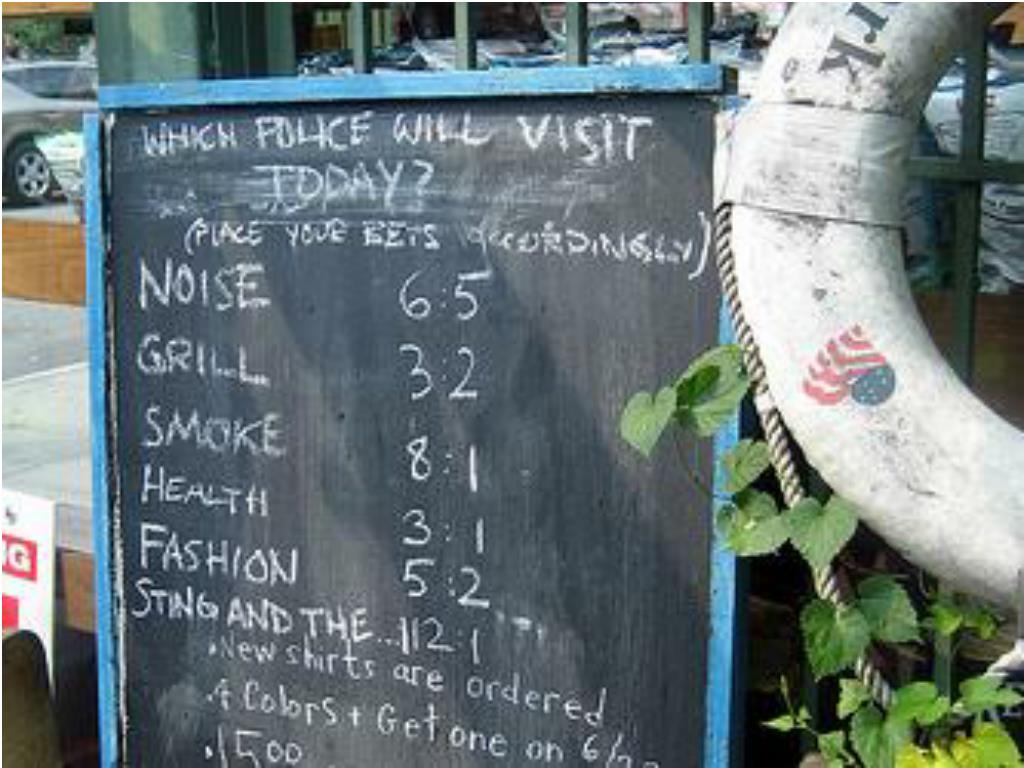 WHICH POLICE WILL VISIT
TODAY?
(PLACE YOUR BETS ACCORDINGLY)
NOISE 6:5
GRILL 3:2
SMOKE 8:1
HEALTH 3:1
FASHION 5:2
STING AND THE... 112:1
. New shirts are ordered
. 4 Colors + Get one on 6/
. 1500
rk
G